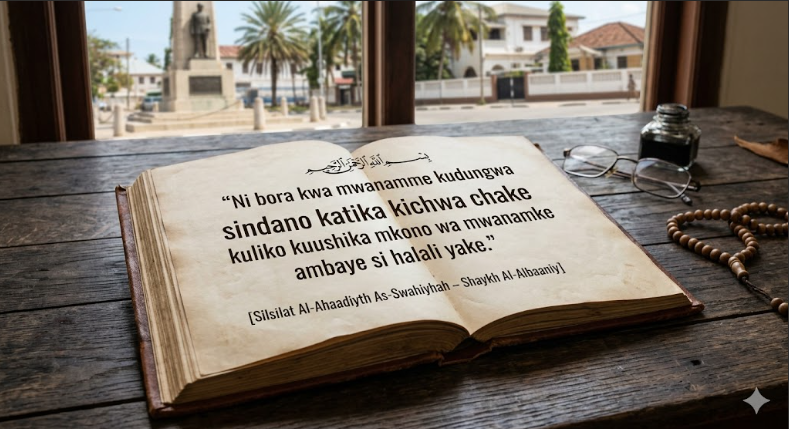 بسم الله الرحمن الرحيم
“Ni bora kwa mwanamme kudungwa
sindano katika kichwa chake
kuliko kuushika mkono wa mwanamke
ambaye si halali yake.”
[Silsilat Al-Ahaadiyth As-Swahiyhah – Shaykh Al-Albaaniy]